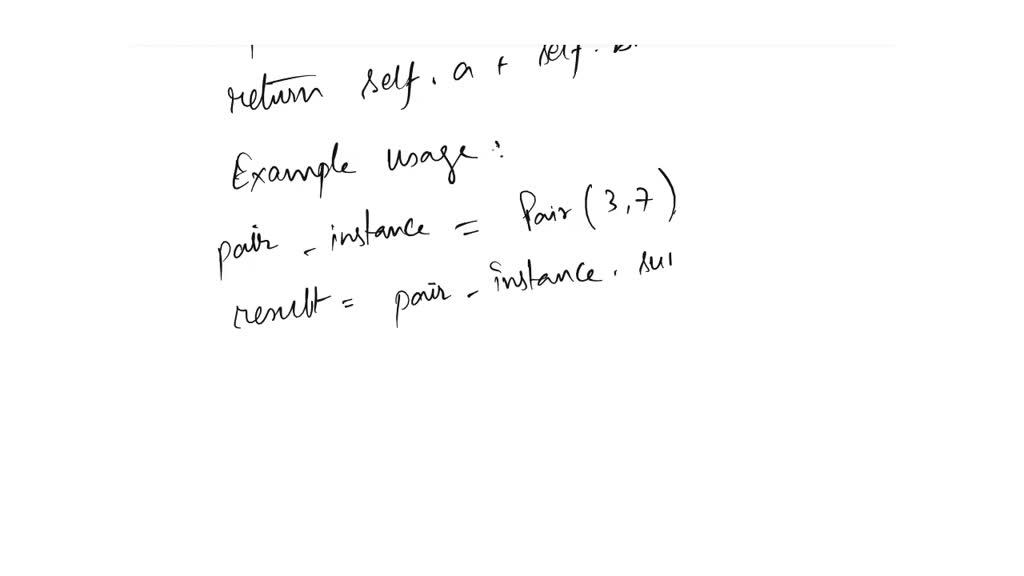 return self. a + self.
Example usage:
pair - instance = Pair (3,7)
result = pair - instance. su